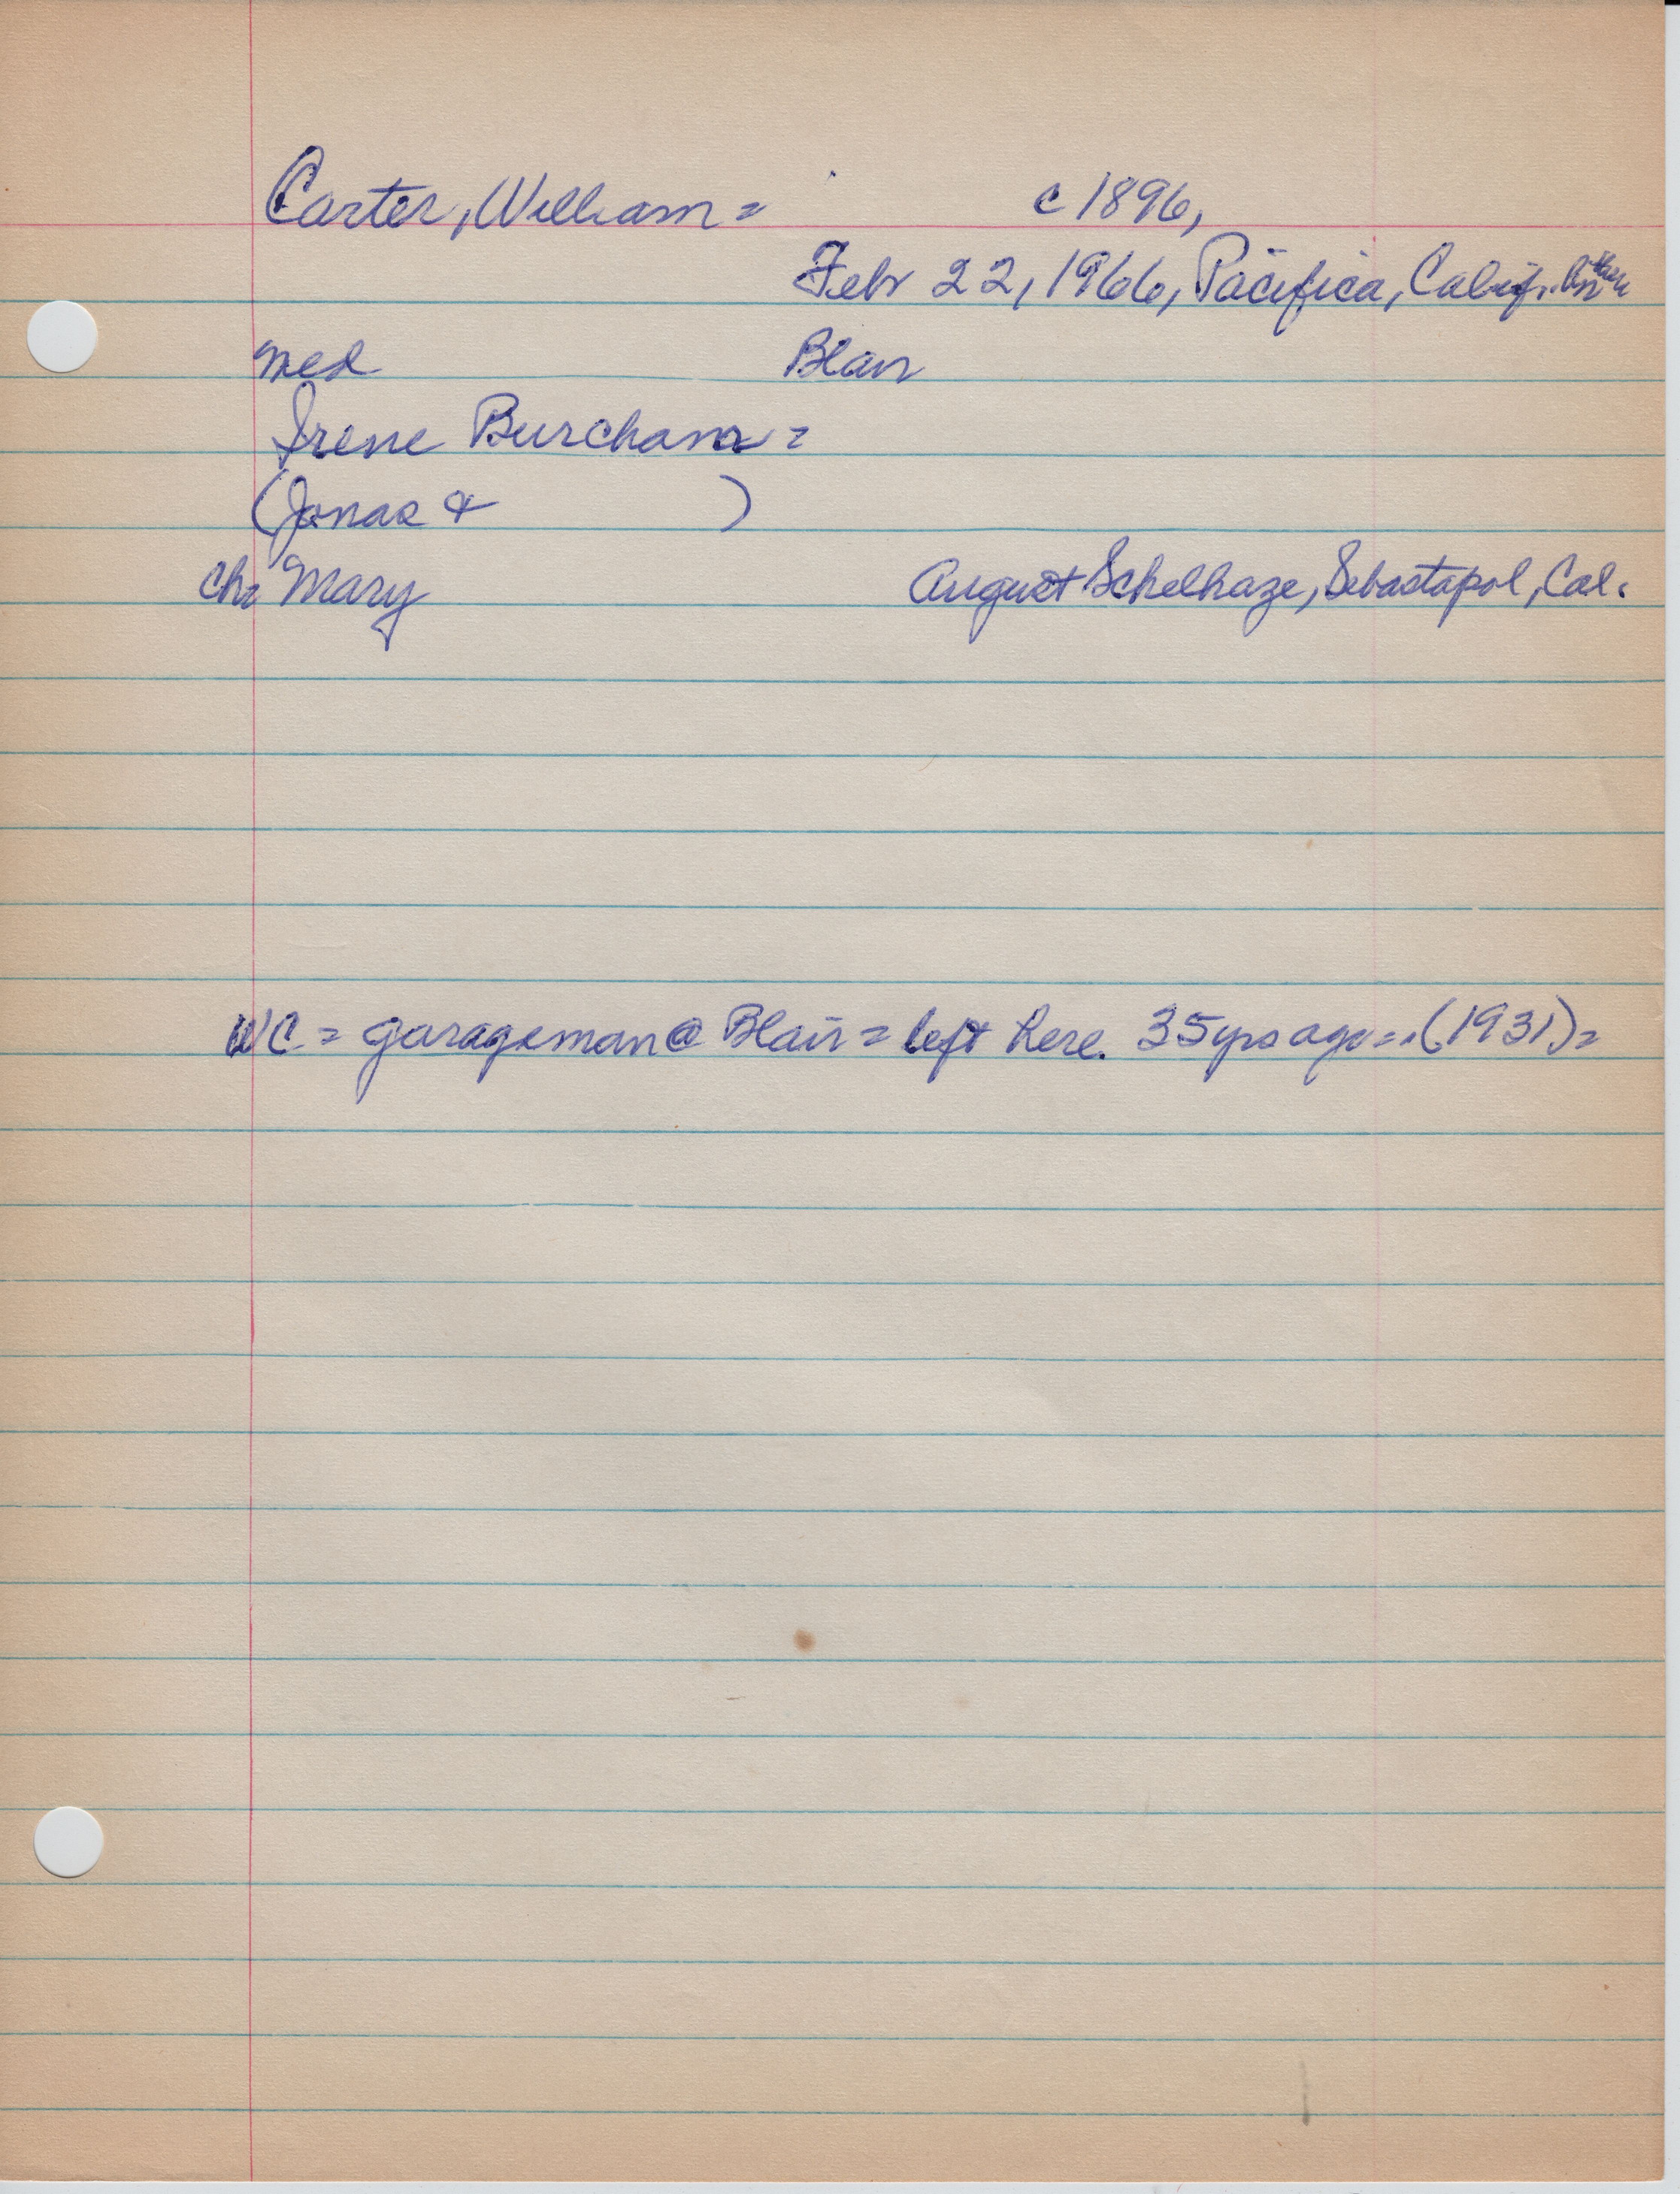 Carter, William = c 1896,
Febr 22, 1966, Pacifica, Calif.
med Blair
Irene Burcham =
(Jonas & )
Ch: Mary August Schelhaze, Sebastapol, Cal.
WC = garageman @ Blair = left here. 35 yrs ago = (1931) =